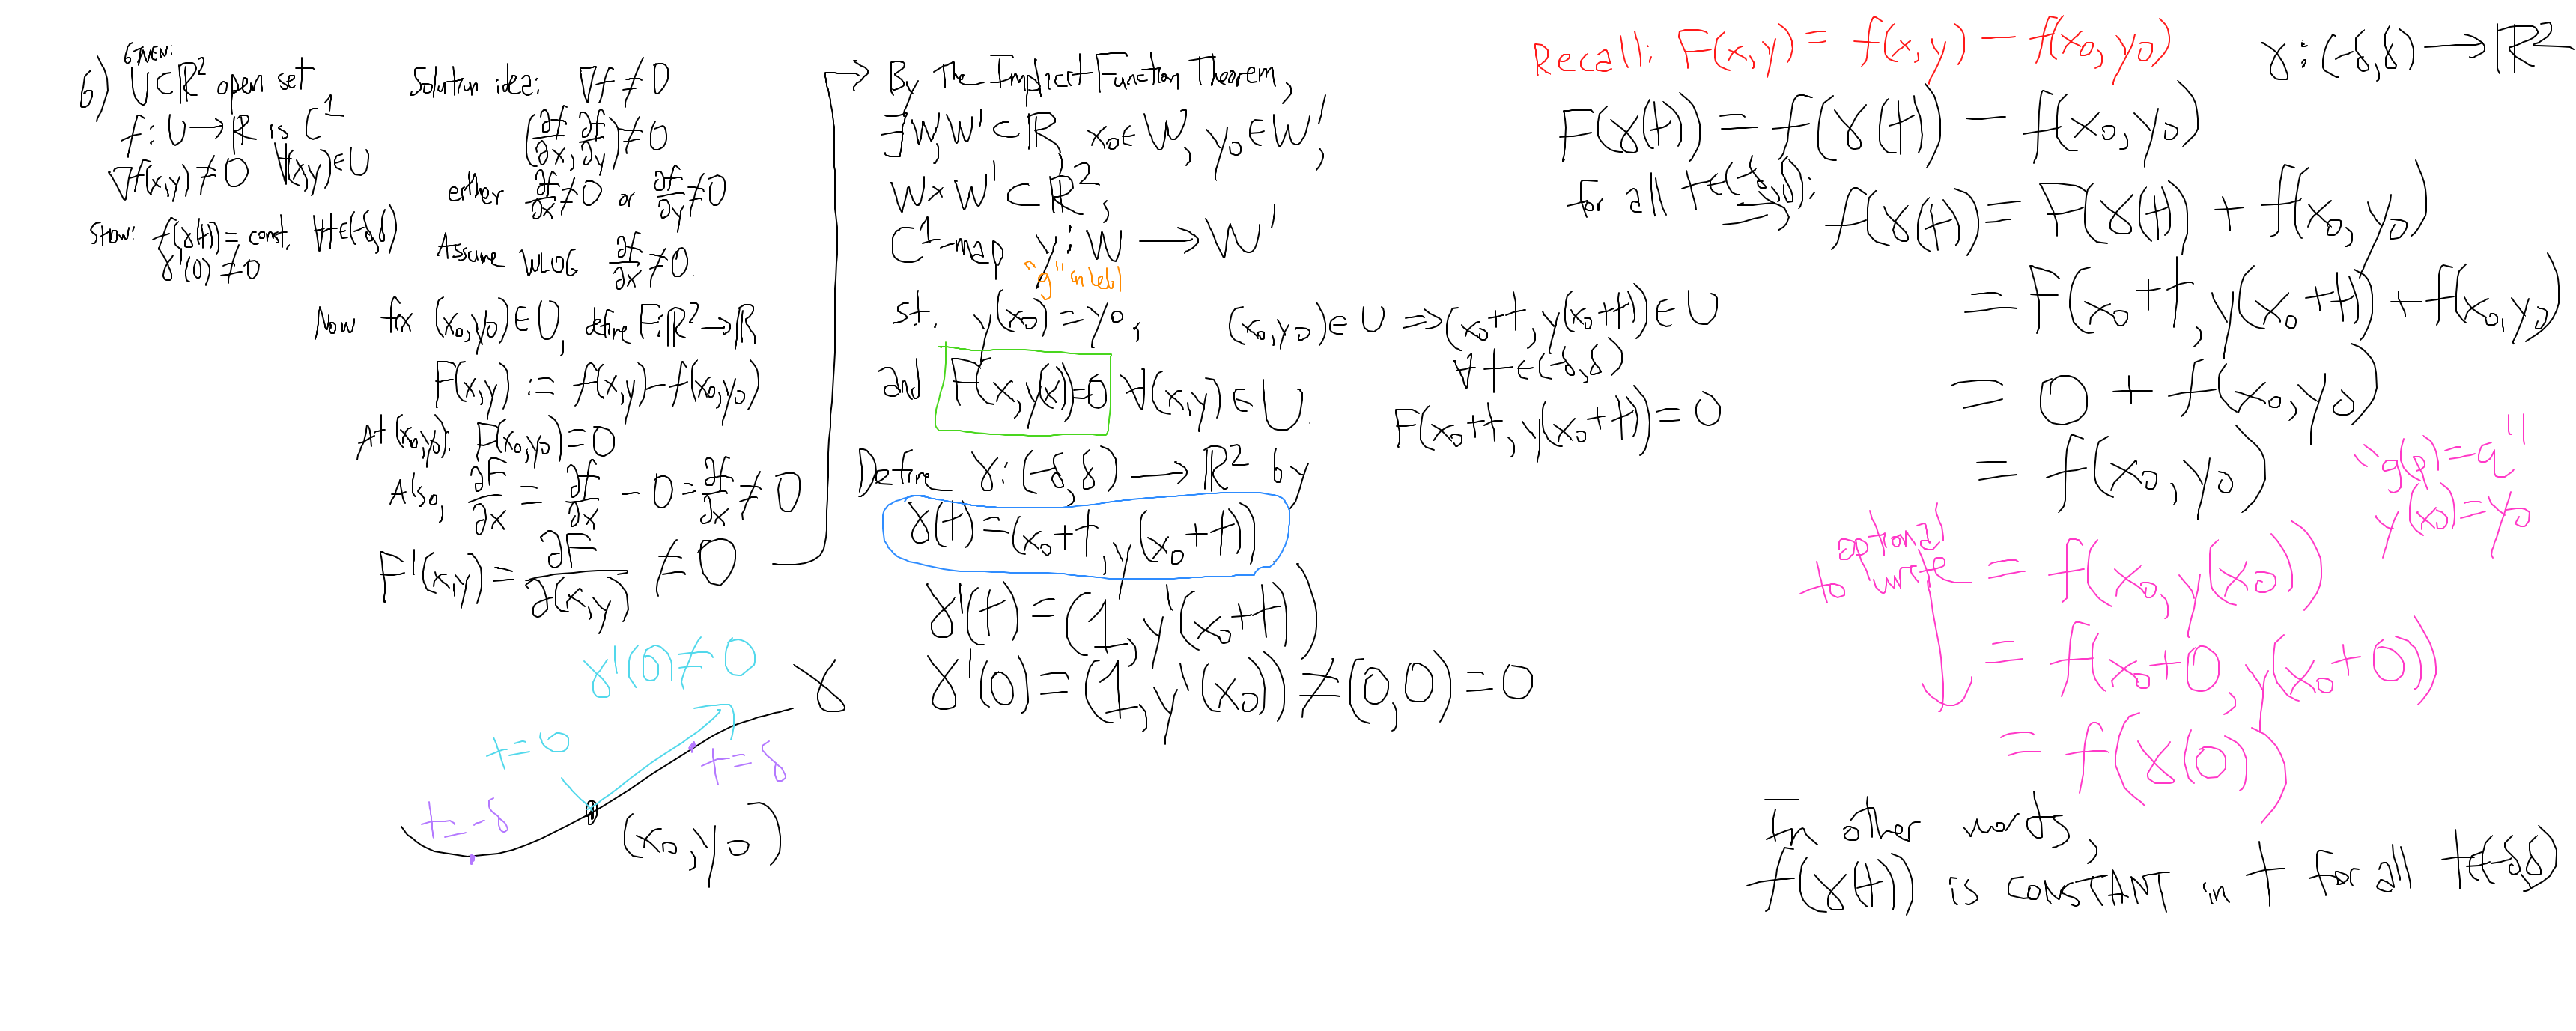 6) GIVEN:
U⊂ℝ² open set
f: U→ℝ is C¹
∇f(x,y)≠0 ∀(x,y)∈U
SHOW: f(γ(t))= const. ∀t∈(-δ,δ)
γ'(0)≠0
Solution idea: ∇f≠0
(∂f/∂x, ∂f/∂y)≠0
either ∂f/∂x≠0 or ∂f/∂y≠0
Assume WLOG ∂f/∂x≠0.
Now fix (x₀,y₀)∈U, define F:ℝ²→ℝ
F(x,y) := f(x,y)-f(x₀,y₀)
At (x₀,y₀): F(x₀,y₀)=0
Also, ∂F/∂x = ∂f/∂x - 0 = ∂f/∂x ≠ 0
F'(x,y) = ∂F/∂(x,y) ≠ 0
γ'(0)≠0
γ
t=0
t=δ
t=-δ
(x₀,y₀)
→ By the Implicit Function Theorem,
∃W,W'⊂ℝ, x₀∈W, y₀∈W',
W×W'⊂ℝ²,
C¹-map y: W→W'
"g" in lebl
st. y(x₀)=y₀,
and F(x,y(x))=0 ∀(x,y)∈U.
(x₀,y₀)∈U ⇒(x₀+t, y(x₀+t))∈U
∀t∈(-δ,δ)
F(x₀+t, y(x₀+t))=0
Define γ: (-δ,δ)→ℝ² by
γ(t)=(x₀+t, y(x₀+t))
γ'(t)=(1, y'(x₀+t))
γ'(0)=(1, y'(x₀))≠(0,0)=0
Recall: F(x,y)= f(x,y)-f(x₀,y₀)
γ: (-δ,δ)→ℝ²
F(γ(t))= f(γ(t)) - f(x₀,y₀)
for all t∈(-δ,δ):
⇒ f(γ(t))= F(γ(t)) + f(x₀,y₀)
= F(x₀+t, y(x₀+t))+f(x₀,y₀)
= 0 + f(x₀,y₀)
= f(x₀,y₀)
"g(p)=q"
y(x₀)=y₀
optional
to write
= f(x₀, y(x₀))
= f(x₀+0, y(x₀+0))
= f(γ(0))
In other words,
f(γ(t)) is CONSTANT in t for all t∈(-δ,δ)